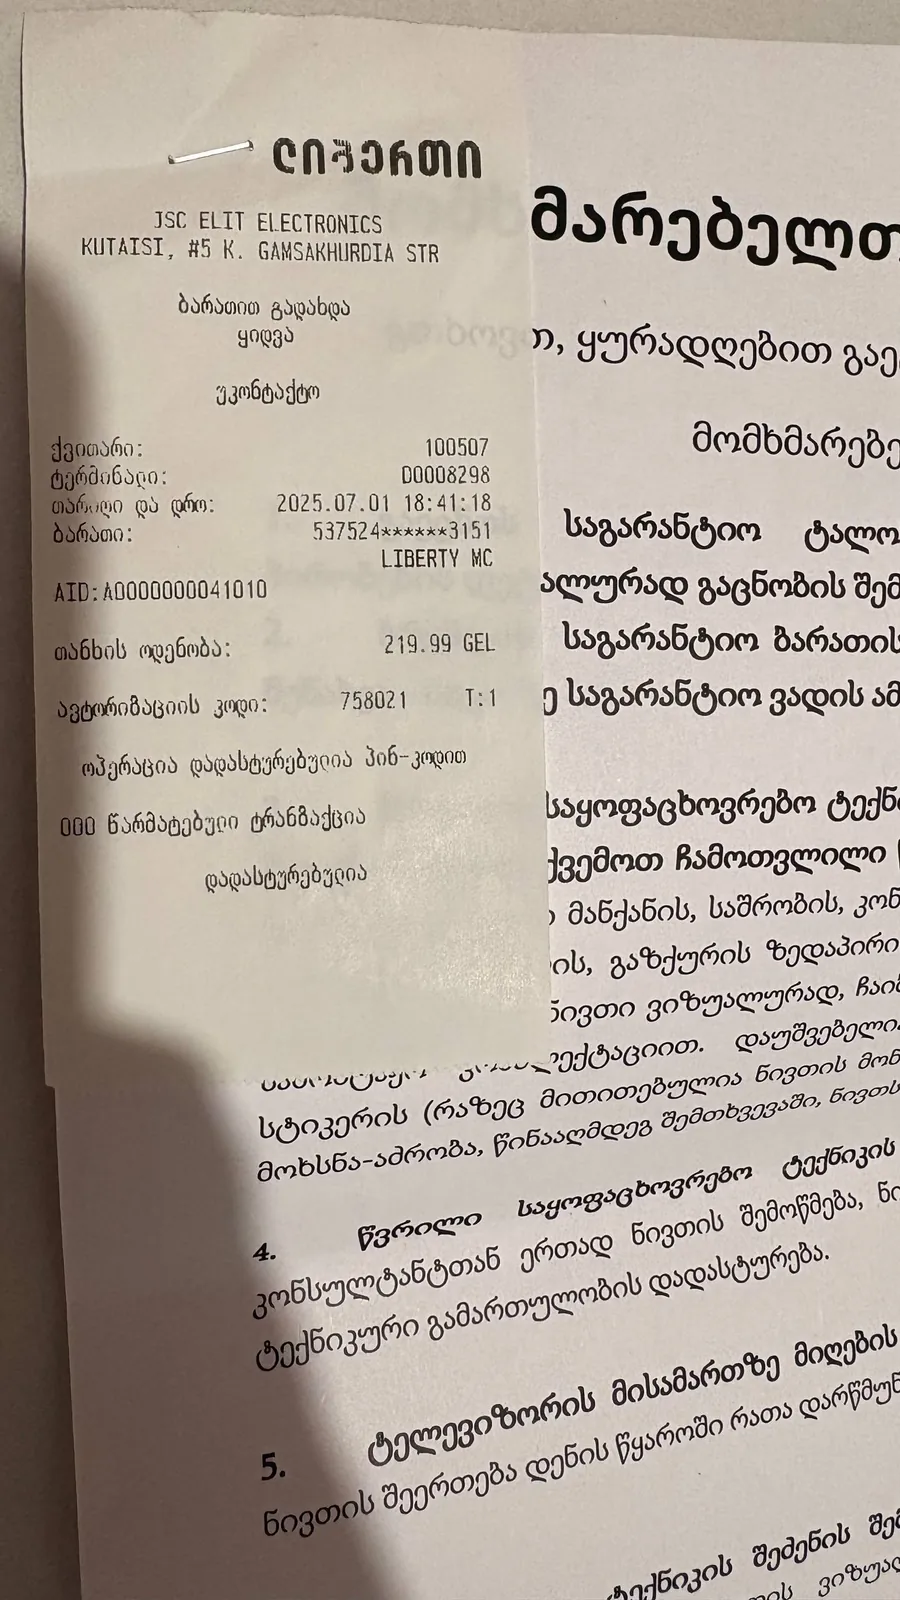 ლიბერთი
JSC ELIT ELECTRONICS
KUTAISI, #5 K. GAMSAKHURDIA STR
ბარათით გადახდა
ყიდვა
უკონტაქტო
ქვითარი: 100507
ტერმინალი: D0008298
თარიღი და დრო: 2025.07.01 18:41:18
ბარათი: 537524******3151
LIBERTY MC
AID:A0000000041010
თანხის ოდენობა: 219.99 GEL
ავტორიზაციის კოდი: 758021 T:1
ოპერაცია დადასტურებულია პინ-კოდით
000 წარმატებული ტრანზაქცია
დადასტურებულია
მარებელთ
თ, ყურადღებით გაე
მომხმარებე
საგარანტიო ტალო
ალურად გაცნობის შემ
საგარანტიო ბარათის
ე საგარანტიო ვადის ამ
საყოფაცხოვრებო ტექნ
ქვემოთ ჩამოთვლილი
მანქანის, საშრობის, კონ
ის, გაზქურის ზედაპირი
ნივთი ვიზუალურად, ჩაი
ექტაციით. დაუშვებელია
სტიკერის (რაზეც მითითებულია ნივთის მონ
მოხსნა-აძრობა, წინააღმდეგ შემთხვევაში, ნივთს
4. წვრილი საყოფაცხოვრებო ტექნიკის
კონსულტანტთან ერთად ნივთის შემოწმება, ნი
ტექნიკური გამართულობის დადასტურება.
5. ტელევიზორის მისამართზე მიღების
ნივთის შეერთება დენის წყაროში რათა დარწმუნ
ტექნიკის შეძენის შემ
ის ვიზუალ